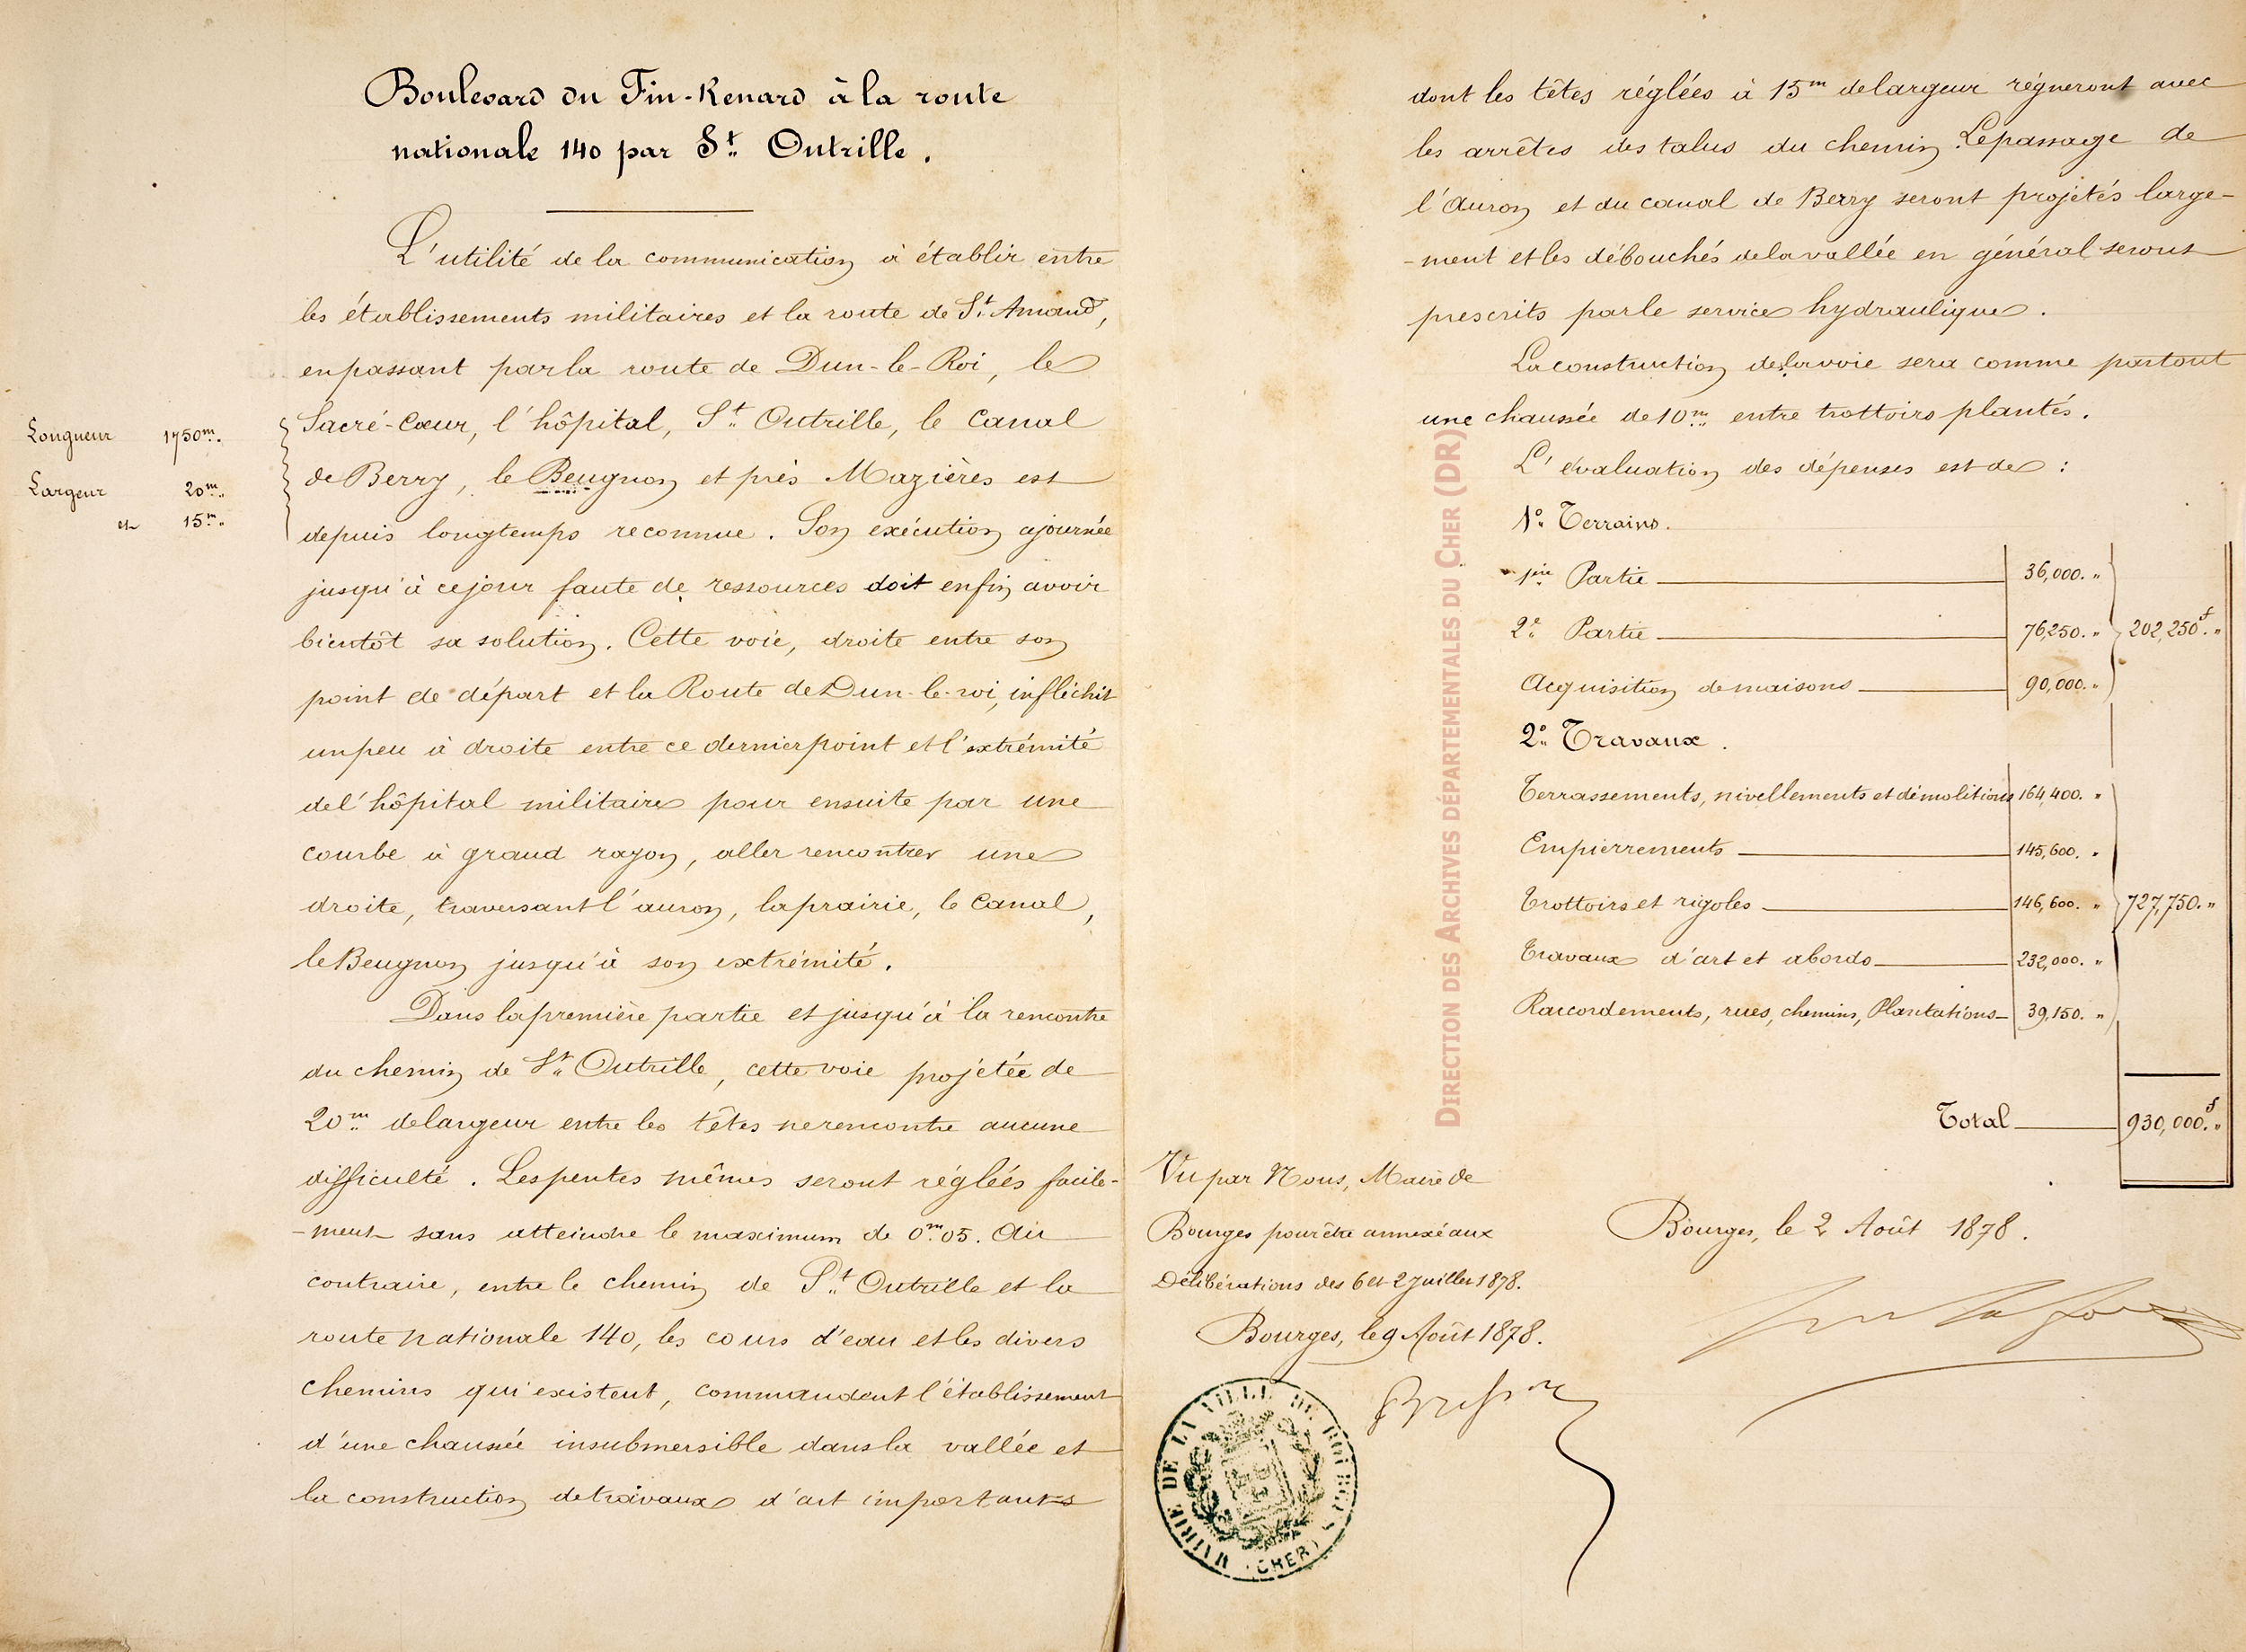 Boulevard du Fin-Renard à la route
nationale 140 par St. Outrille.
L'utilité de la communication à établir entre
les établissements militaires et la route de St. Amand,
en passant par la route de Dun-le-Roi, le
Sacré-Cœur, l'hôpital, St. Outrille, le Canal
de Berry, le Beugnon et près Mazières est
depuis longtemps reconnue. Son exécution ajournée
jusqu'à ce jour faute de ressources doit enfin avoir
bientôt sa solution. Cette voie, droite entre son
point de départ et la Route de Dun-le-roi, infléchit
un peu à droite entre ce dernier point et l'extrémité
de l'hôpital militaire pour ensuite par une
courbe à grand rayon, aller rencontrer une
droite, traversant l'auron, la prairie, le Canal,
le Beugnon jusqu'à son extrémité.
Longueur 1750m.
Largeur 20m.
et 15m.
Dans la première partie et jusqu'à la rencontre
du chemin de St. Outrille, cette voie projetée de
20m. de largeur entre les têtes ne rencontre aucune
difficulté. Les pentes mêmes seront réglées facile-
-ment sans atteindre le maximum de 0m.05. Au
contraire, entre le chemin de St. Outrille et la
route nationale 140, les cours d'eau et les divers
chemins qui existent, commandent l'établissement
d'une chaussée insubmersible dans la vallée et
la construction de travaux d'art importants
dont les têtes réglées à 15m de largeur régneront avec
les arrêtes des talus du chemin. Le passage de
l'Auron et du canal de Berry seront projetés large-
-ment et les débouchés de la vallée en général seront
prescrits par le service hydraulique.
La construction de la voie sera comme partout
une chaussée de 10m. entre trottoirs plantés.
L'évaluation des dépenses est de :
1° Terrains.
1ère Partie 36,000. "
2e Partie 76,250. " 202,250f. "
Acquisition de maisons 90,000. "
2° Travaux.
Terrassements, nivellements et démolitions 164,400. "
Empierrements 145,600. "
Trottoirs et rigoles 146,600. " 727,750. "
Travaux d'art et abords 232,000. "
Raccordements, rues, chemins, Plantations 39,150. "
Total 930,000f. "
Bourges, le 2 Août 1878.
Vu par Nous, Maire de
Bourges pour être annexé aux
Délibérations des 6 et 2 Juillet 1878.
Bourges, le 9 Août 1878.
MAIRIE DE LA VILLE DE BOURGES
(CHER)
DIRECTION DES ARCHIVES DÉPARTEMENTALES DU CHER (DR)